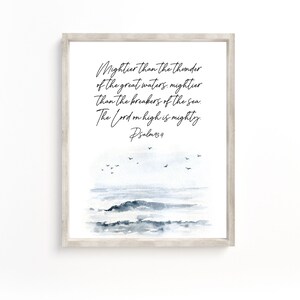 Mightier than the thunder
of the great waters, mightier
than the breakers of the sea.
The Lord on high is mighty.
Psalm 93:4